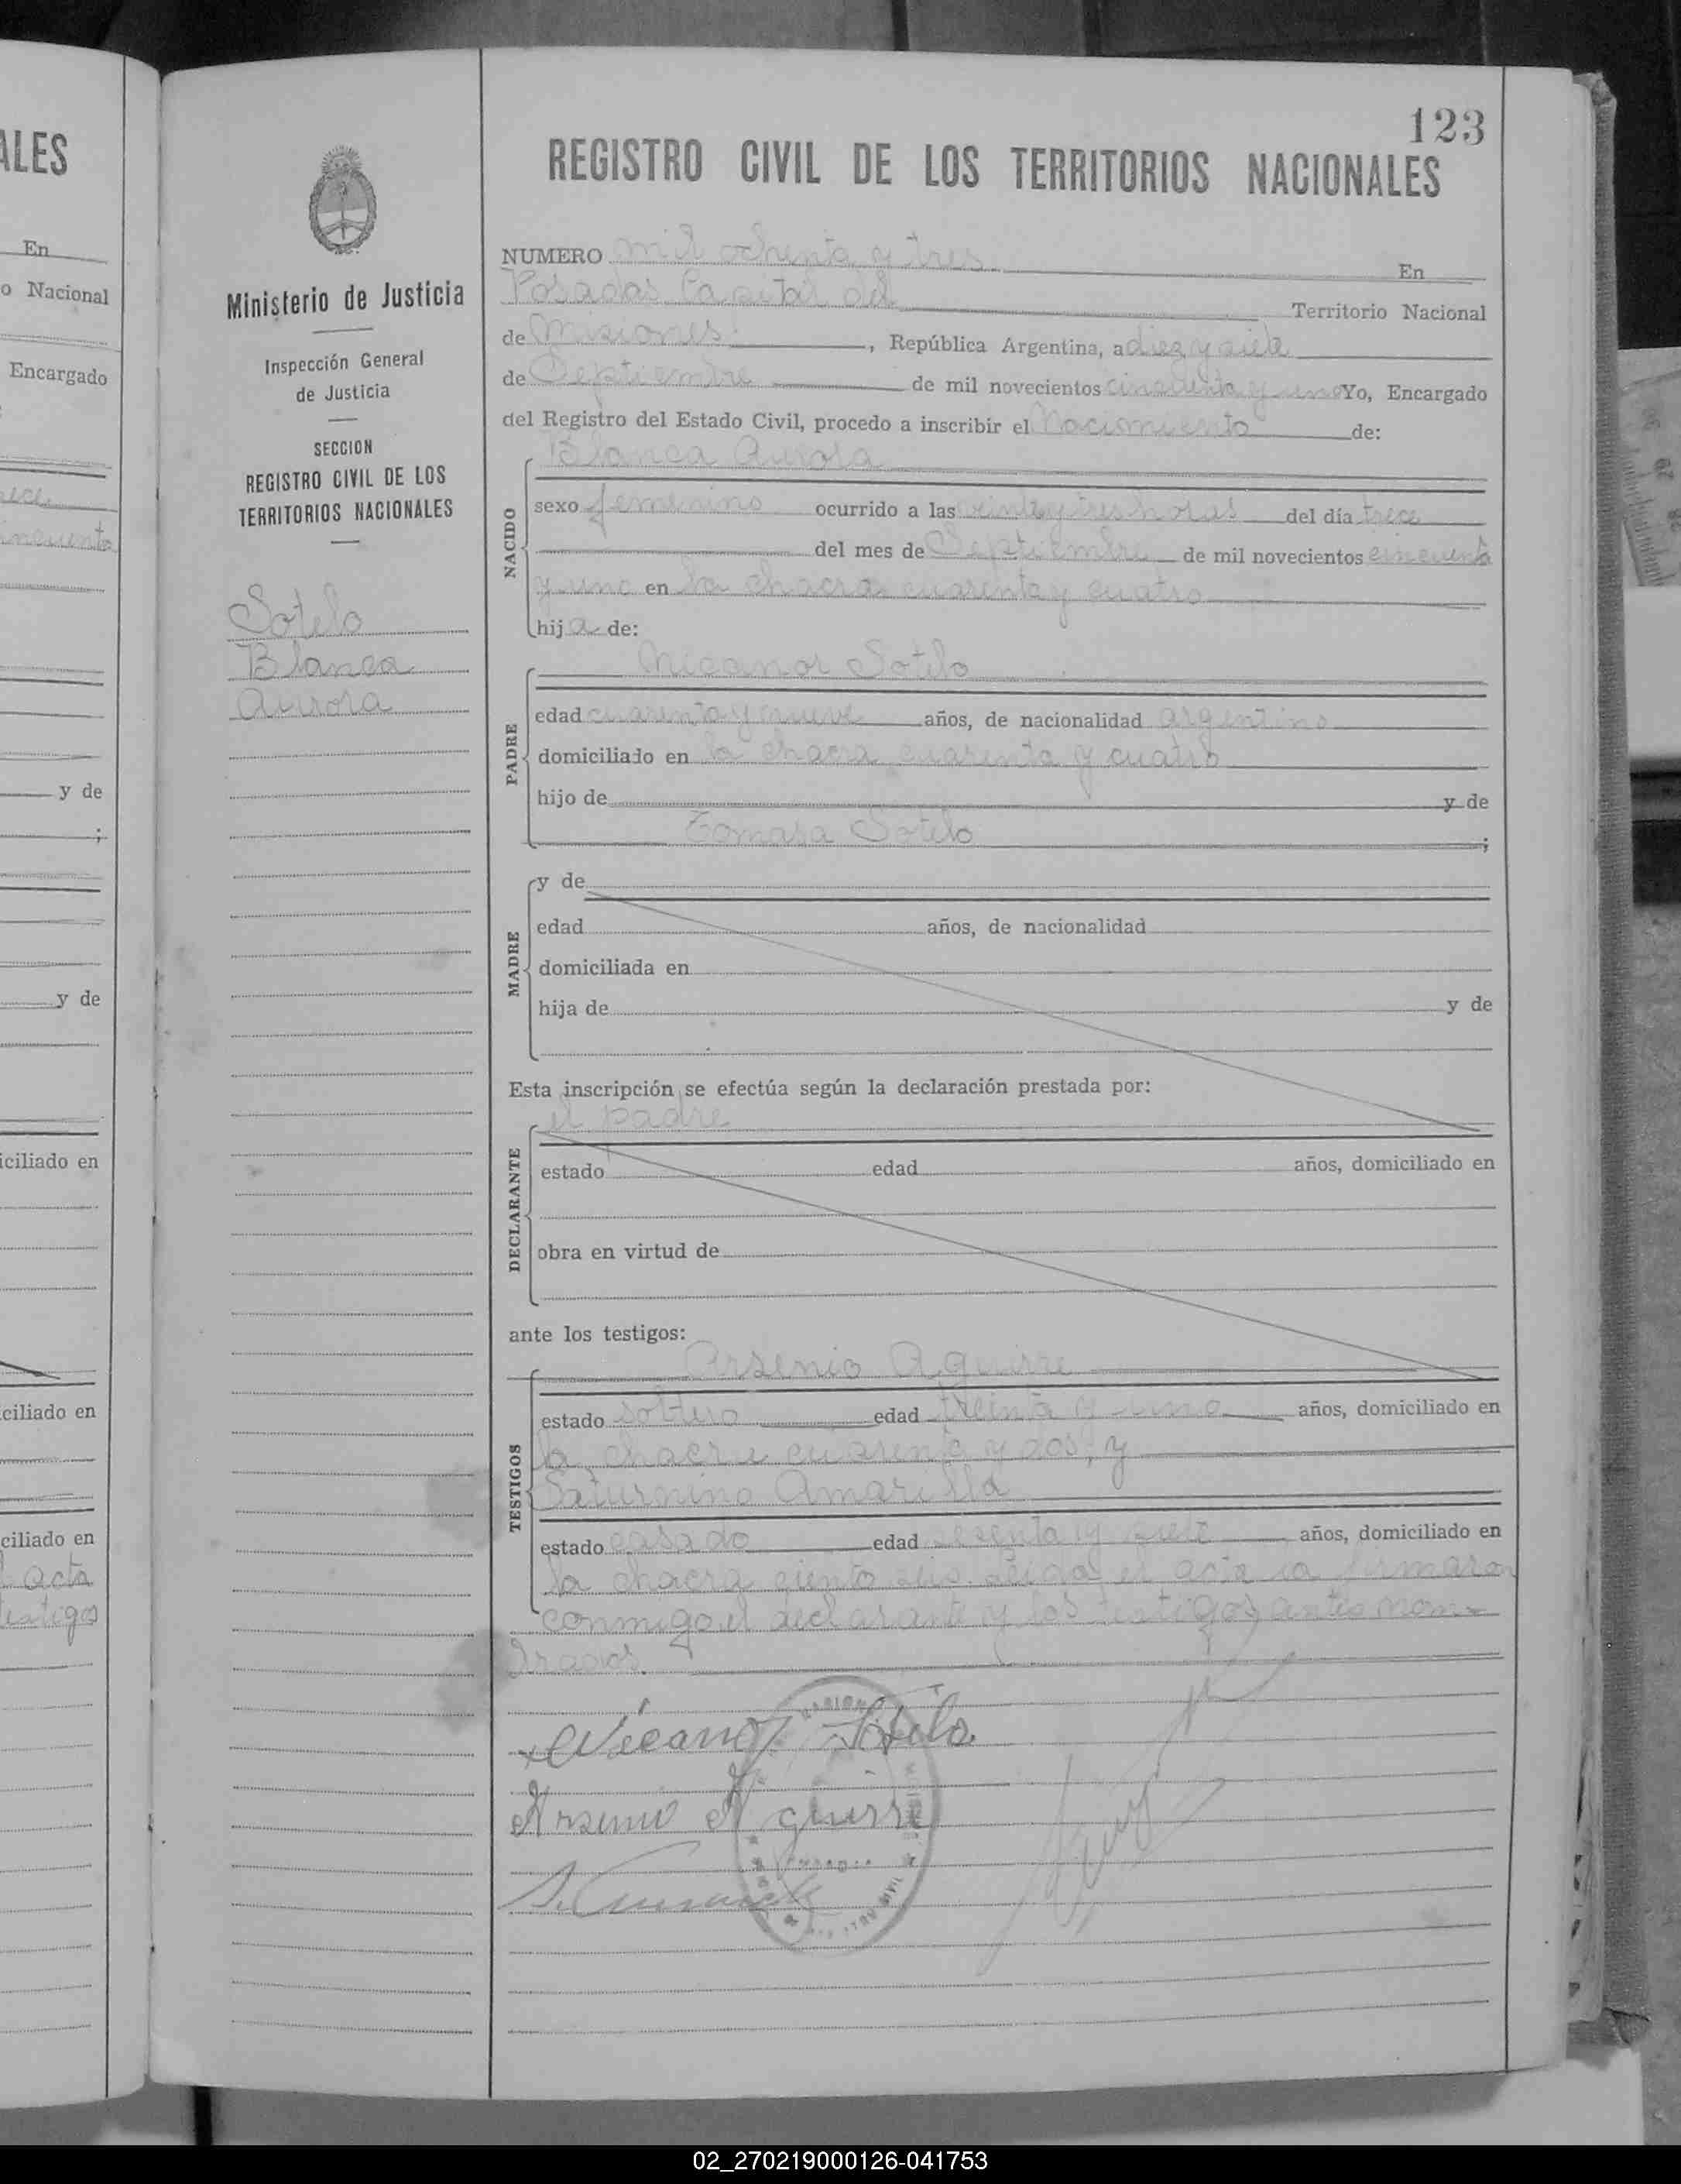 ALES
En
o Nacional
Encargado
rece
incuenta
y de
;
y de
iciliado en
ciliado en
ciliado en
acta
testigos
Ministerio de Justicia
Inspección General
de Justicia
SECCION
REGISTRO CIVIL DE LOS
TERRITORIOS NACIONALES
Sotelo
Blanca
Aurora
123
REGISTRO CIVIL DE LOS TERRITORIOS NACIONALES
NUMERO mil ochenta y tres En
Posadas Capital del Territorio Nacional
de Misiones, República Argentina, a diez y siete
de Septiembre de mil novecientos cincuenta y uno Yo, Encargado
del Registro del Estado Civil, procedo a inscribir el Nacimiento de:
Blanca Aurora
NACIDO
sexo femenino ocurrido a las veinte y tres horas del día trece
del mes de Septiembre de mil novecientos cincuenta
y uno en la chacra cuarenta y cuatro
hija de:
Nicanor Sotelo
PADRE
edad cuarenta y nueve años, de nacionalidad argentino
domiciliado en la chacra cuarenta y cuatro
hijo de y de
Tomasa Sotelo ;
MADRE
y de
edad años, de nacionalidad
domiciliada en
hija de y de
Esta inscripción se efectúa según la declaración prestada por:
el padre
DECLARANTE
estado edad años, domiciliado en
obra en virtud de
ante los testigos:
Arsenio Aguirre
TESTIGOS
estado soltero edad treinta y uno años, domiciliado en
la chacra cuarenta y dos, y
Saturnino Amarilla
estado casado edad sesenta y siete años, domiciliado en
la chacra ciento seis. Leida el acta la firmaron
conmigo el declarante y los testigos antes nom-
brados.
Nicanor Sotelo
Arsenio Aguirre
02_270219000126-041753